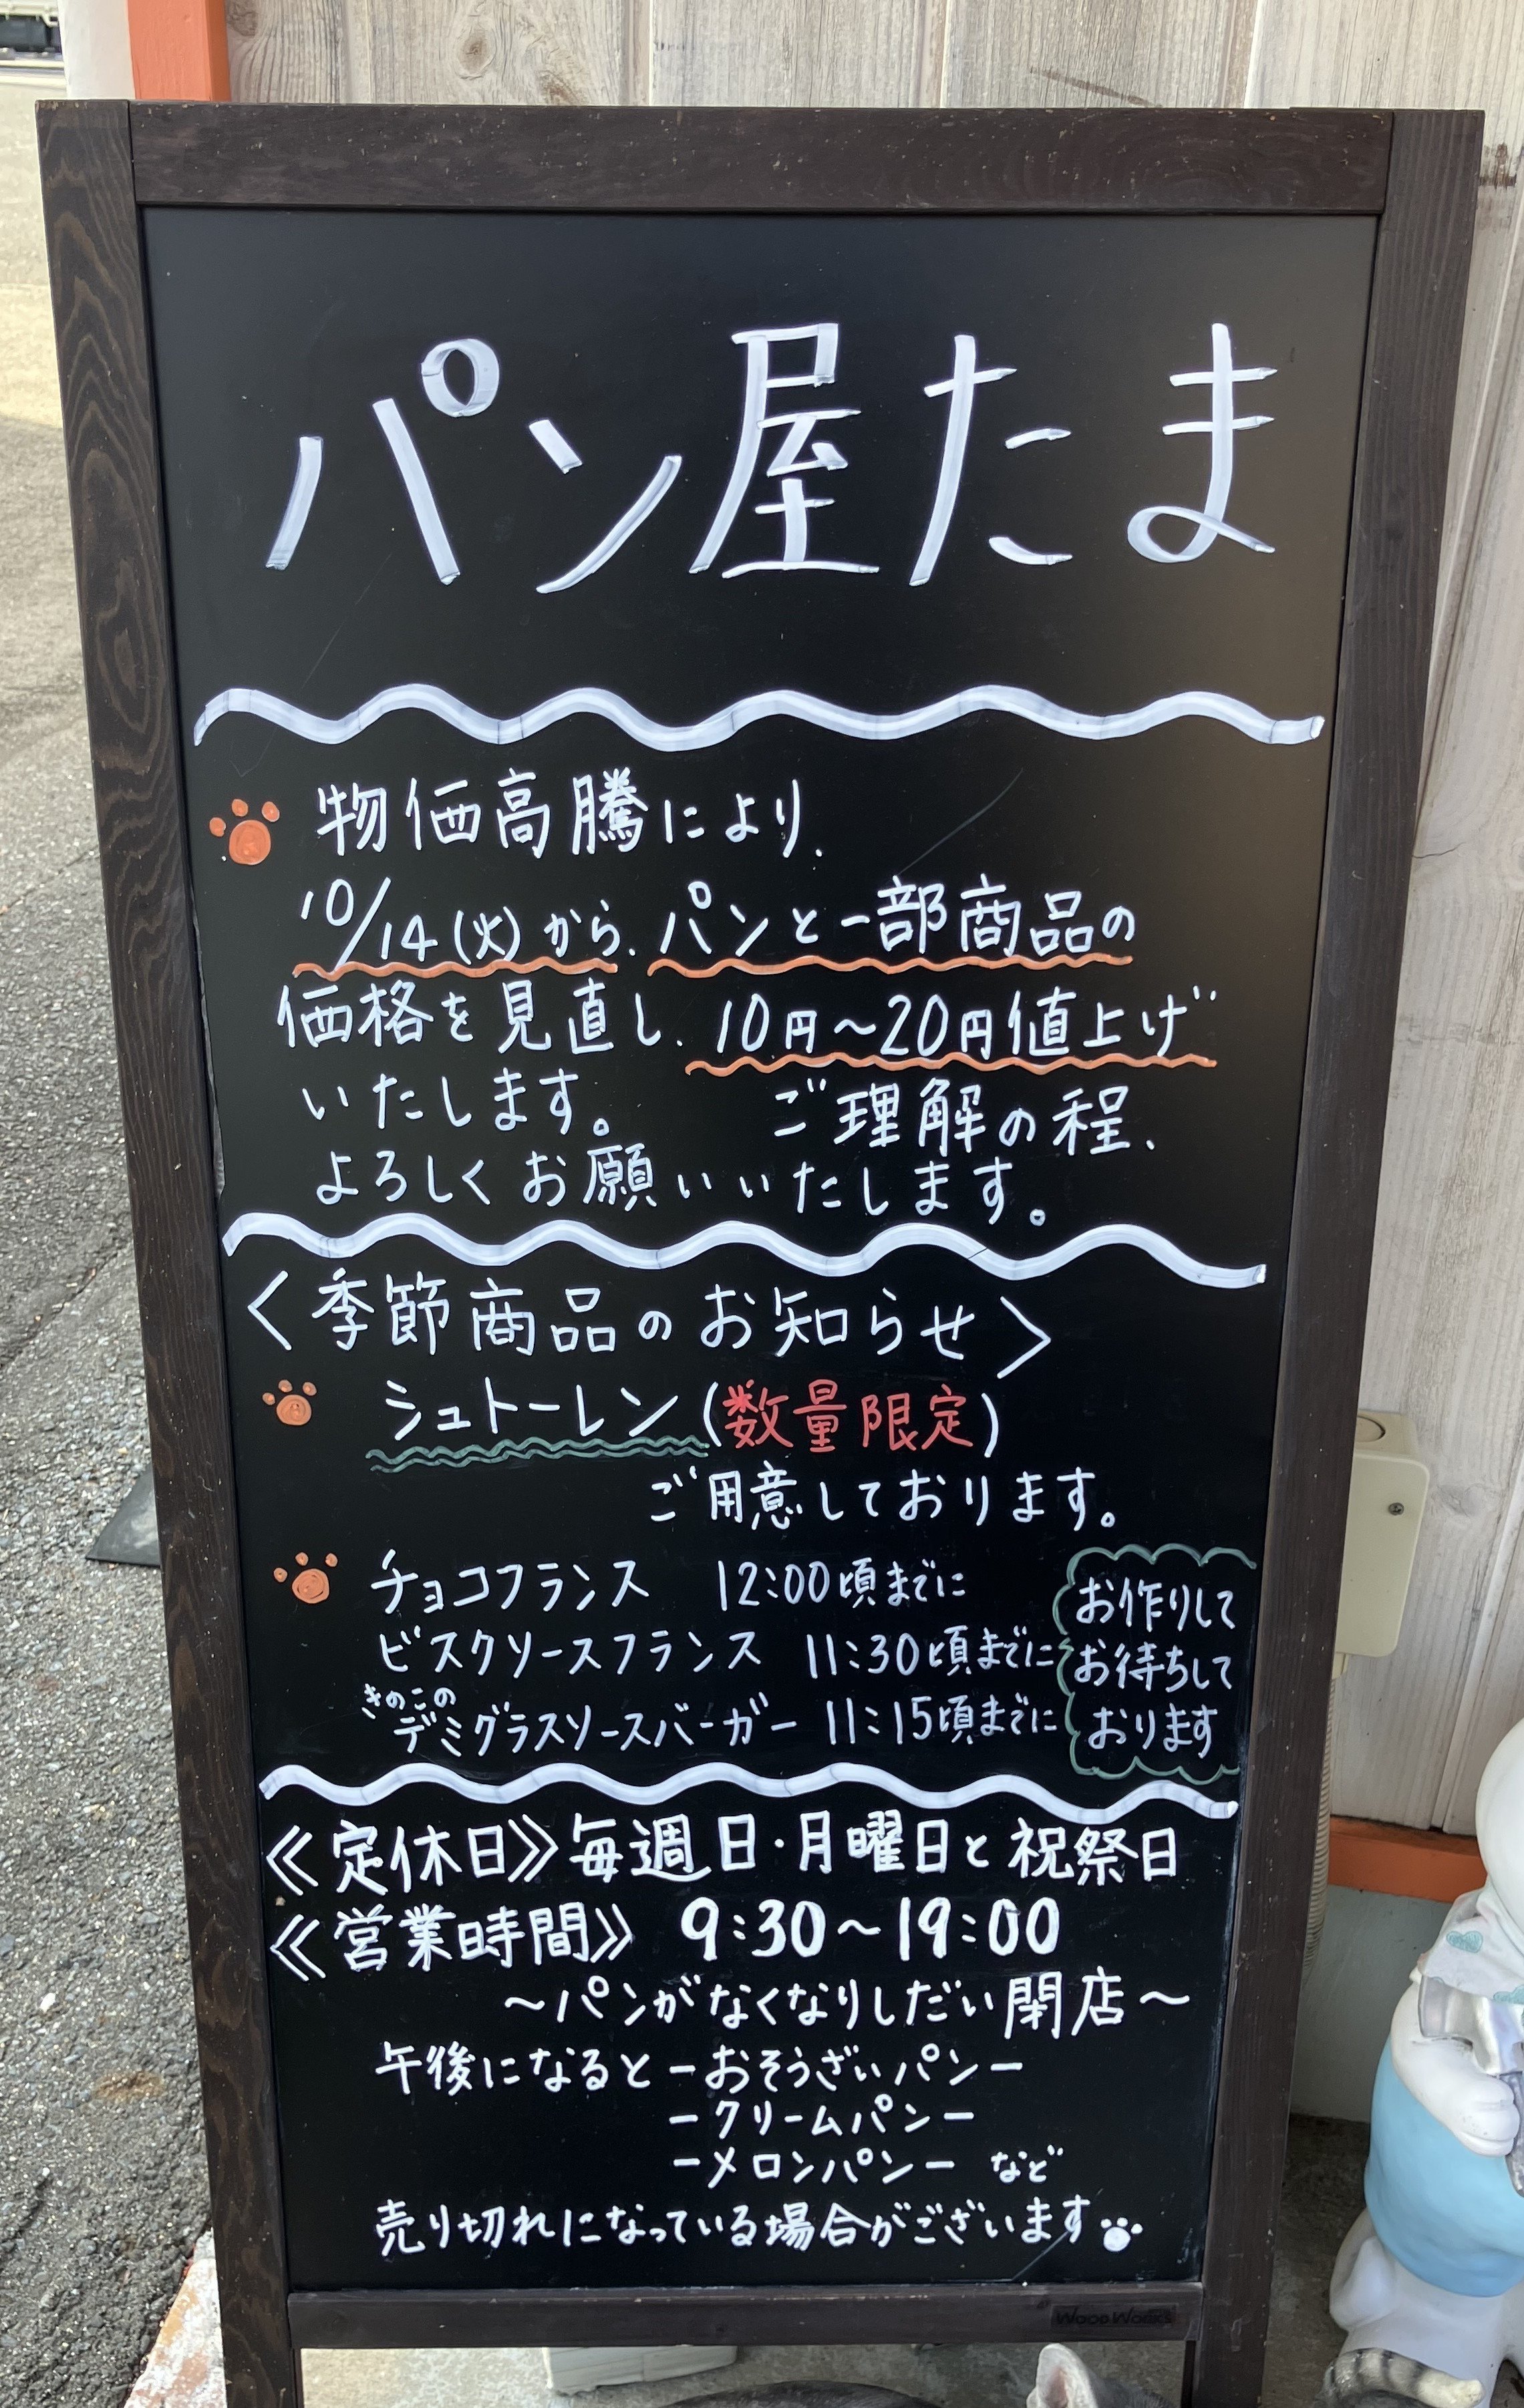 パン屋たま
物価高騰により、
10/14(火)から、パンと一部商品の
価格を見直し、10円～20円値上げ
いたします。 ご理解の程、
よろしくお願いいたします。
＜季節商品のお知らせ＞
シュトーレン(数量限定)
ご用意しております。
チョコフランス 12:00頃までに
ビスクソースフランス 11:30頃までに
きのこの
デミグラスソースバーガー 11:15頃までに
お作りして
お待ちして
おります
《定休日》毎週日・月曜日と祝祭日
《営業時間》 9:30～19:00
～パンがなくなりしだい閉店～
午後になると－おそうざいパン－
－クリームパン－
－メロンパン－ など
売り切れになっている場合がございます
WOOD WORKS